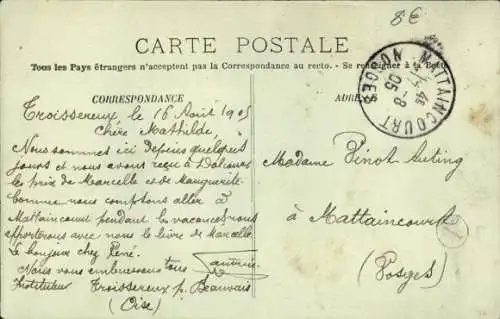 8€
CARTE POSTALE
Tous les Pays étrangers n'acceptent pas la Correspondance au recto. - Se renseigner à la Poste
CORRESPONDANCE
ADRE
MATTAINCOURT
VOSGES
8
05
Troissereux, le 16 Août 1905
Chère Mathilde,
Nous sommes ici depuis quelques
jours et nous avons reçu à
les prix de Marcelle et de Marguerite.
Comme nous comptons aller à
Mattaincourt pendant les vacances nous
apporterons avec nous le livre de Marcelle.
Le bonjour chez René.
Nous vous embrassons tous
Instituteur Troissereux p. Beauvais
(Oise)
Madame Vinot
à Mattaincourt
(Vosges)